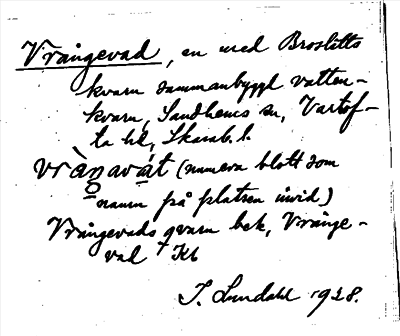 Vrångevad, en med Broslätts
kvarn sammanbyggd vatten-
kvarn, Sandhems sn, Vartof-
ta hd, Skarab. l.
vrån̥avát (numera blott som
namn på platsen invid)
Vrångevads qvarn bek, Vrånge-
val Kb
J. Lundahl 1928.